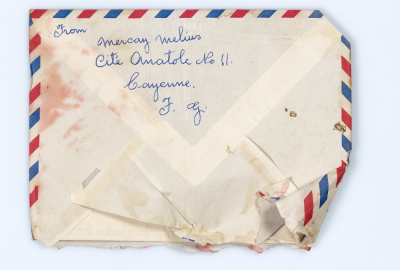 From
Mercay Melius
Cite Anatole No 11.
Cayenne.
F. G.